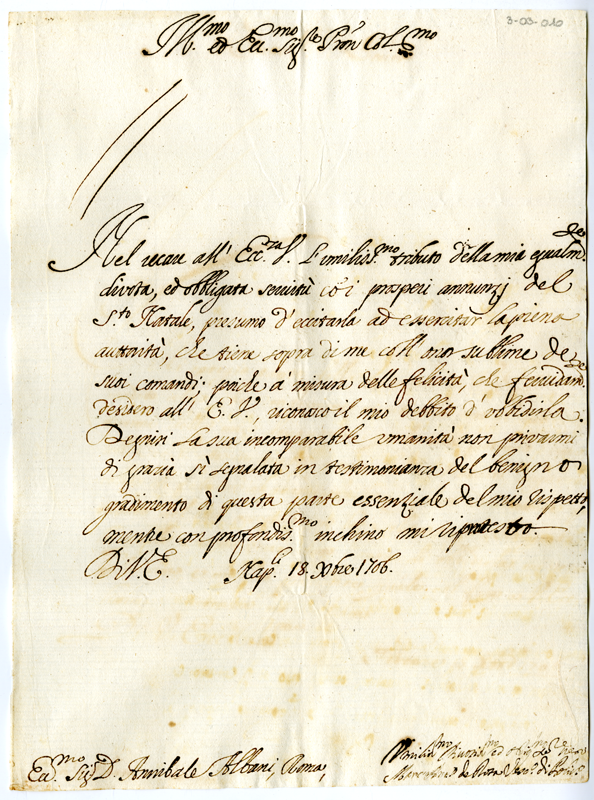 3-03-010
Ill.mo ed Ecc.mo Sig.re Pron Col.mo
Nel recare all' Ecc.za V. l'umiliss.mo tributo della mia egualm.te
divota, ed obbligata servitù co' i prosperi annunzj del
S.to Natale, presumo d'eccitarla ad essercitar la piena
auttorità, che tiene sopra di me coll' onor sublime de
suoi comandi; poiche a' misura delle felicità, che
desidero all' E. V., riconosco il mio debbito d' vobidirla.
Degnisi la sua incomparabile vmanità non privarmi
di grazia sì segnalata in testimonianza del benigno
gradimento di questa parte essenziale del mio rispetto,
mentre con profondiss.mo inchino mi riprotesto.
Di V. E. Nap.i 18 Xbre 1706.
Ecc.mo Sig. D. Annibale Albani, Roma,